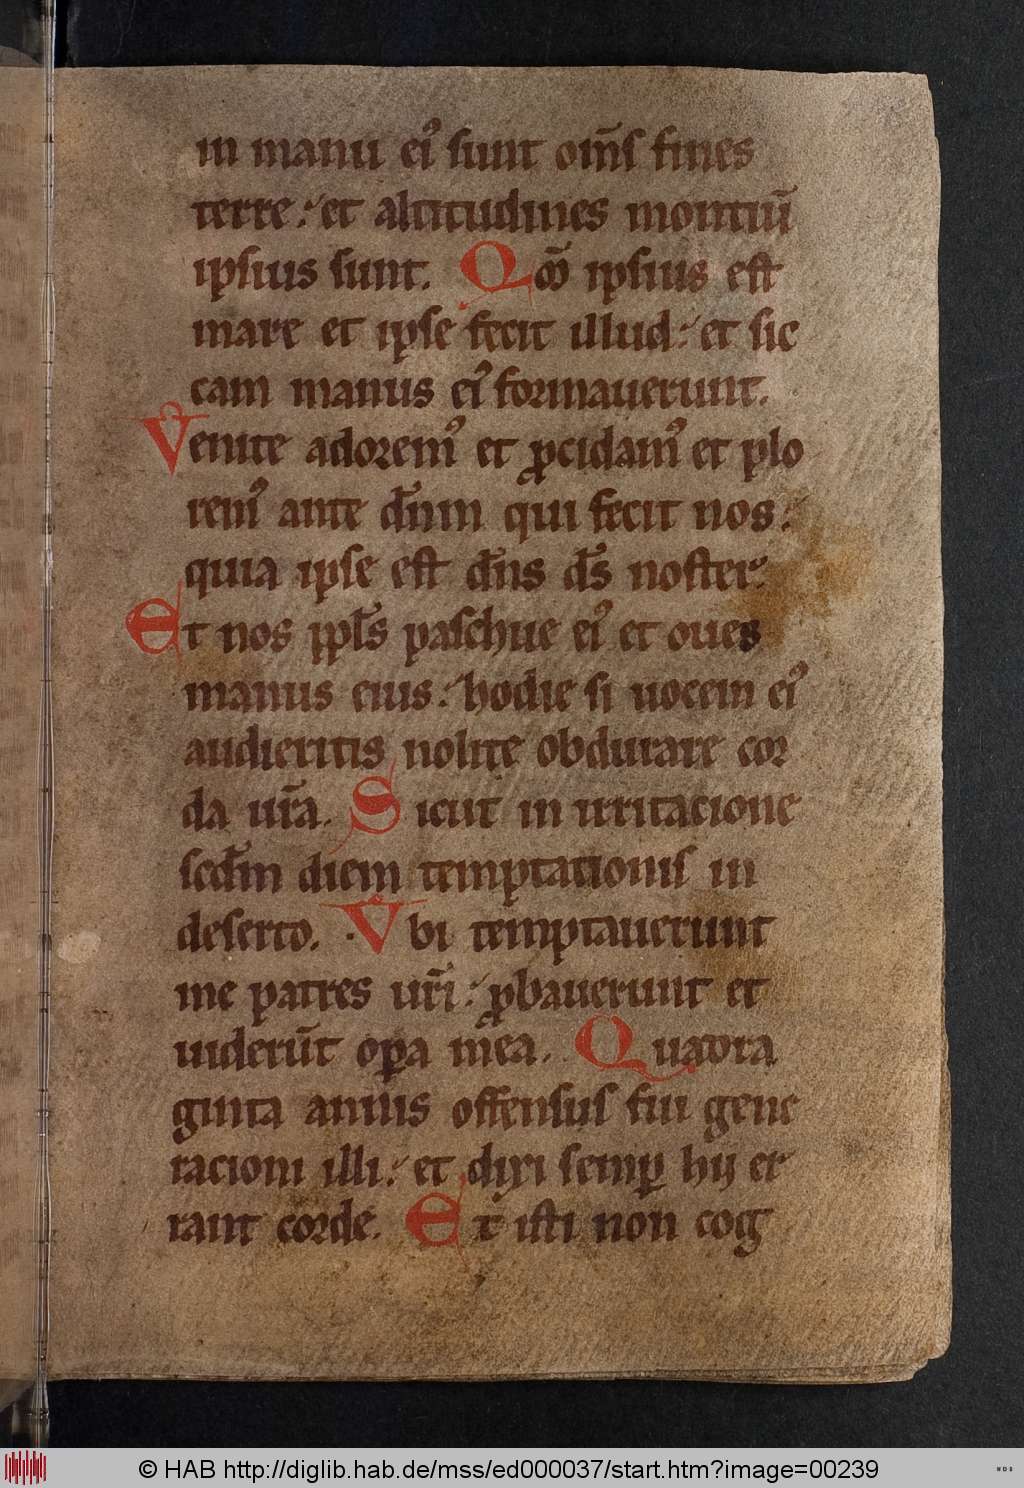 in manu eiꝰ sunt om̄s fines
terre: et altitudines montiū
ipsius sunt. Qm̄ ipsius est
mare et ipse fecit illud: et sic
cam manus eiꝰ formauerunt.
Venite adoremꝰ et ꝓcidamꝰ et plo
remꝰ ante dn̄m qui fecit nos:
quia ipse est dn̄s ds̄ noster.
Et nos ppl̄s paschue eiꝰ et oues
manus eius: hodie si uocem eiꝰ
audieritis nolite obdurare cor
da ur̄a. Sicut in irritacione
scdm̄ diem temptationis in
deserto. Vbi temptauerunt
me patres ur̄i: ꝓbauerunt et
uiderūt oꝑa mea. Quadra
ginta annis offensus fui gene
racioni illi: et dixi semꝑ hij er
rant corde. Et isti non cog
© HAB http://diglib.hab.de/mss/ed000037/start.htm?image=00239